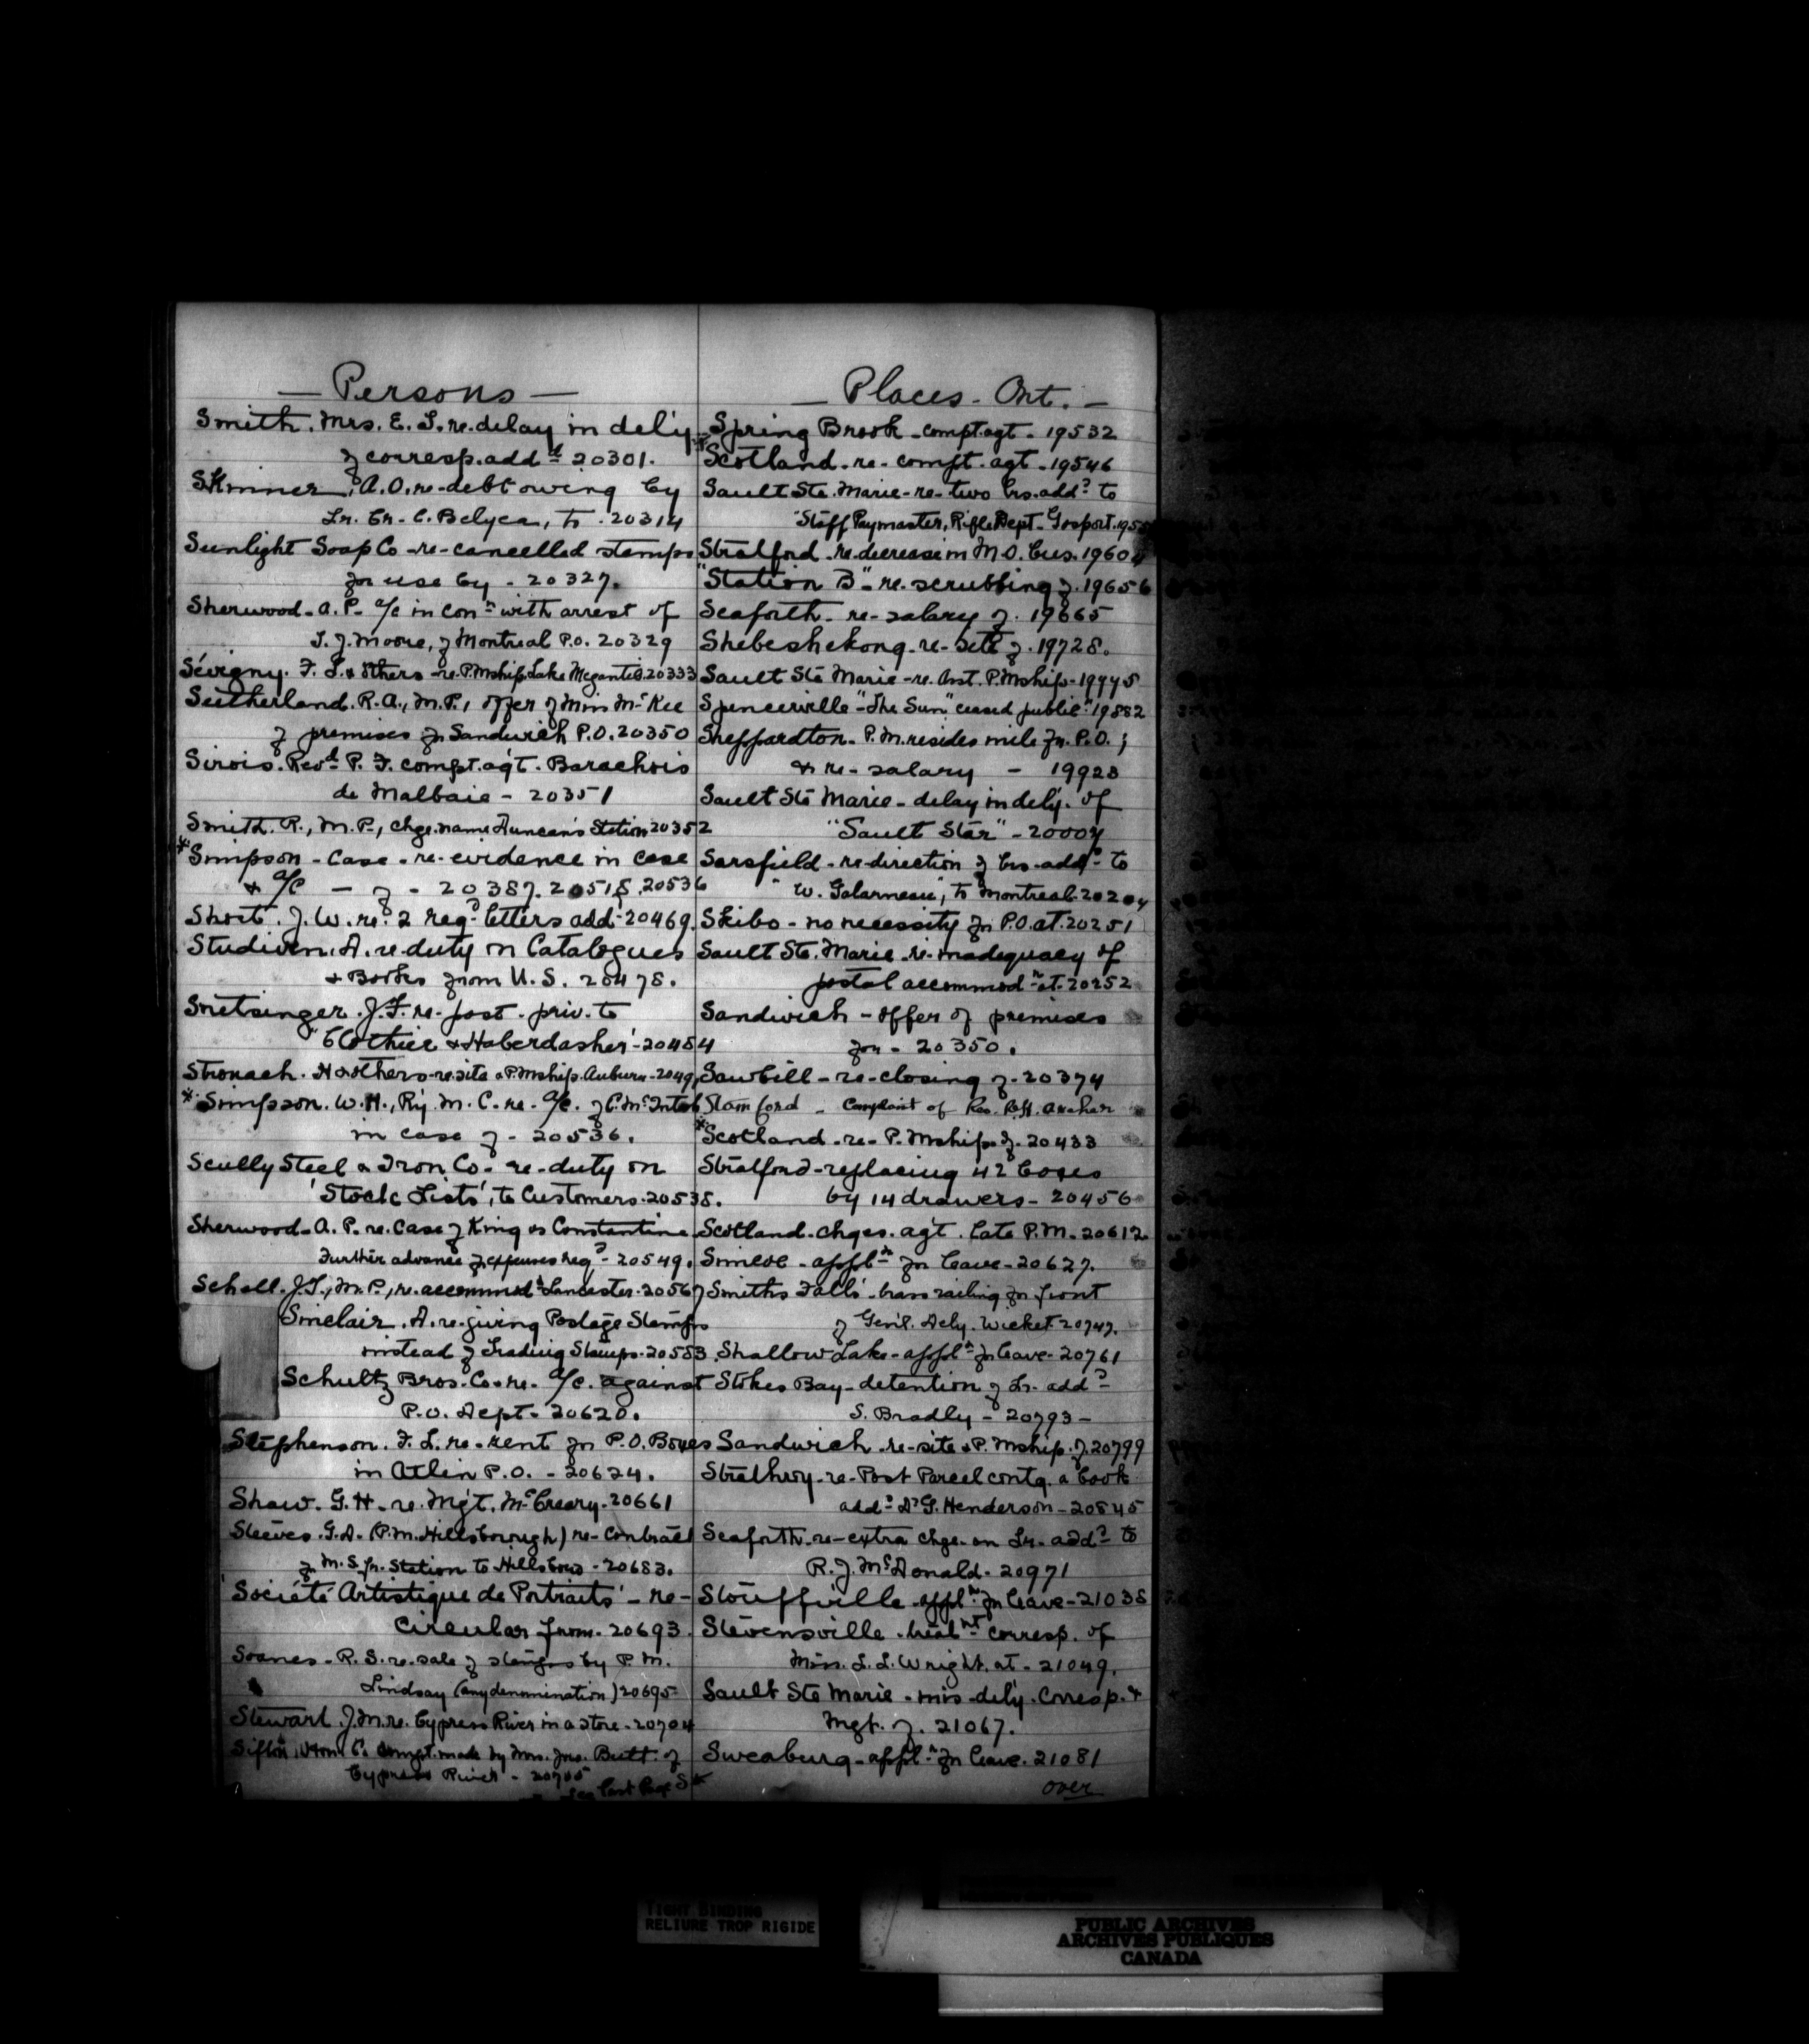 — Persons —
Smith. Mrs. E. L. re. delay in del'y
of corresp. add^d 20301.
Skinner, A.O. re-debt owing by
Lr. Cr. C. Belyea, to. 20314
Sunlight Soap Co -re-cancelled stamps
for use by - 20327.
Sherwood - A. P. a/c in con^n with arrest of
T. J. Moore, of Montreal P.O. 20329
Sévigny. F. L. & others -re. P.Mship. Lake Megantic. 20333
Sutherland. R.A., M.P., offer of Miss McKee
of premises for Sandwich P.O. 20350
Sirois. Rev^d P. F. compt. ag't. Barachois
de Malbaie - 20351
Smith. R., M.P., chge. name Duncan's Station 20352
*Simpson - Case - re-evidence in case
& a/c - of - 20387. 20518. 20536
Short. J. W. re. 2 reg^d letters add^d 20469.
Studiven. A. re duty on Catalogues
& Books from U.S. 20478.
Smetsinger. J. F. re-post. priv. to
"Clothier & Haberdasher' - 20484
Stronach. H & others - re. site & P.Mship. Auburn - 2049
*Simpson. W. H., Ry. M. C. re. a/c. of C. McIntosh
in case of - 20536.
Scully Steel & Iron Co - re-duty on
'Stock Lists', to Customers. 20538.
Sherwood - A. P. re. Case of King vs Constantine
Further advance of expenses req^d - 20549.
Schell. J.T., M.P., re. accommod^n Lancaster. 20567
Sinclair. A. re. giving Postage Stamps
instead of Trading Stamps. 20583.
Schultz Bros. Co. re. a/c. against
P.O. Dept. 20620.
Stephenson. F. L. re-rent for P.O. Boxes
in Atlin P.O. - 20624.
Shaw. G. H. - re. Mg't. McCreary. 20661
Steeves. G.A. (P.M. Hillsborough) re-contract
of M. S. fr. Station to Hillsboro - 20683.
'Société Artistique de Portraits' - re -
Circular from. 20693.
Soanes - R. S. re. sale of stamps by P. M.
Lindsay (any denomination) 20695
Stewart J. M. re. Cypress River in a store - 20704
Sifton, Hon. C. compt. made by Mrs. Jno. Butt of
Cypress River - 20705
See last Page S *
— Places - Ont. —
Spring Brook - compt. agt - 19532
*Scotland - re - compt. agt - 19546
Sault Ste. Marie - re - two lrs. add^d to
"Staff Paymaster, Rifle Dept - Gosport. 195
Stratford - re. decrease in M.O. Bus. 1960
"Station B" - re. scrubbing of. 19656
Seaforth - re - salary of. 19665
Shebeshekong - re - site of. 19728.
Sault Ste Marie - re. Asst. P.Mship - 19775
Spencerville "The Sun" ceased public^n 19882
Sheppardton - P.M. resides mile fr. P.O.;
& re - salary - 19923
Sault Ste Marie - delay in del'y. of
"Sault Star" - 20007
Sarsfield - re-direction of lrs. add^d to
"W. Galarneau", to Montreal. 20204
Skibo - no necessity for P.O. at. 20251
Sault Ste. Marie - re. inadequacy of
postal accommod^n at. 20252
Sandwich - offer of premises
for - 20350.
Sawbill - re - closing of - 20374
Stamford - Complaint of Rev. Archer
*Scotland - re - P. Mship. of. 20433
Stratford - replacing 42 boxes
by 14 drawers - 20456
Scotland. chges. ag't. late P.M. 20612
Simcoe - appl^n for leave - 20627.
Smiths Falls - brass railing for front
of Gen'l. Dely. Wicket. 20747.
Shallow Lake - appl^n for leave - 20761
Stokes Bay - detention of Lr. add^d
S. Bradly - 20793 -
Sandwich - re-site & P. Mship. of. 20799
Strathroy - re - Post Parcel contg. a book
add^d Dr G. Henderson - 20845
Seaforth - re - extra chge - on Lr. add^d to
R. J. McDonald - 20971
Stouffville - appl^n for leave - 21038
Stevensville. treatm^nt corresp. of
Miss. L. L. Wright. at - 21049.
Sault Ste Marie - mis-del'y. Corresp. &
Mgt. of. 21067.
Sweaburg - appl^n for leave. 21081
over
TIGHT BINDING
RELIURE TROP RIGIDE
PUBLIC ARCHIVES
ARCHIVES PUBLIQUES
CANADA